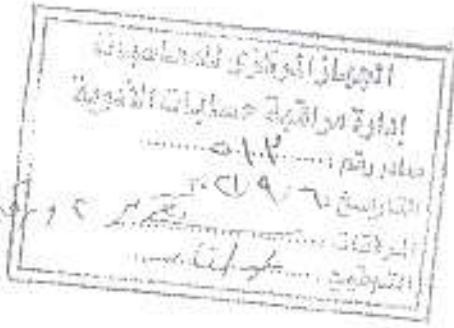 الجهاز المركزي للمحاسبات
إدارة مراقبة حسابات الأدوية
صادر رقم : ٥١٢
التاريخ ٦ / ٩ / ٢٠٢١
المرفقات
التوقيت